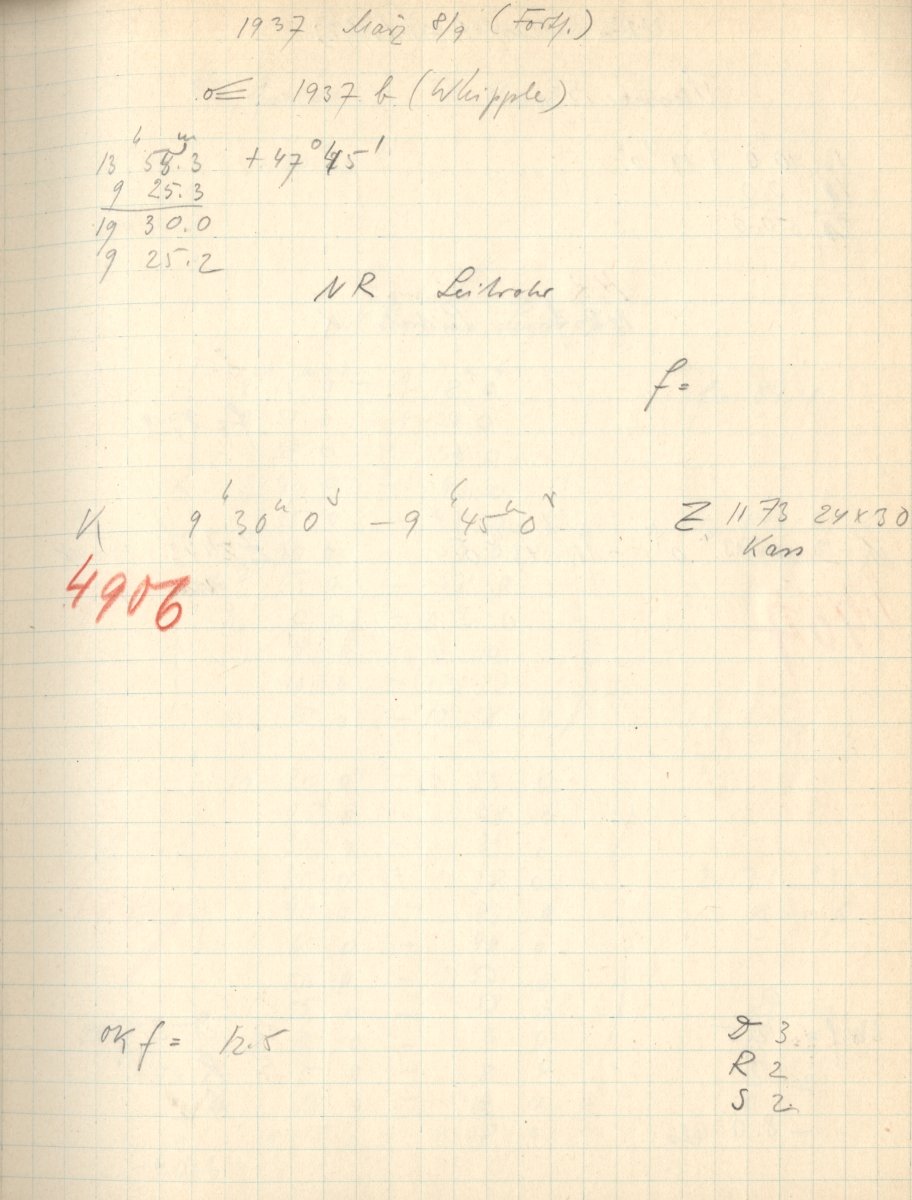 1937 März 8/9 (Forts.)
☄ 1937 b (Whipple)
13ʰ 58ᵐ.3 + 47° 45'
9 25.3
19 30.0
9 25.2
NR Leitrohr
f =
K 9ʰ 30ᵐ 0ˢ – 9ʰ 45ᵐ 0ˢ Z 1173 24 x 30
Kass
4906
OK f = 12.5
D 3
R 2
S 2